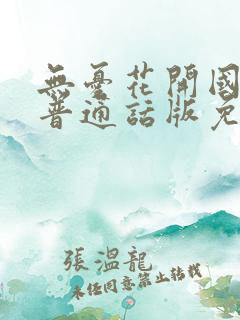 無憂花開國
普通話版免
張溫龍
未经同意禁止转载